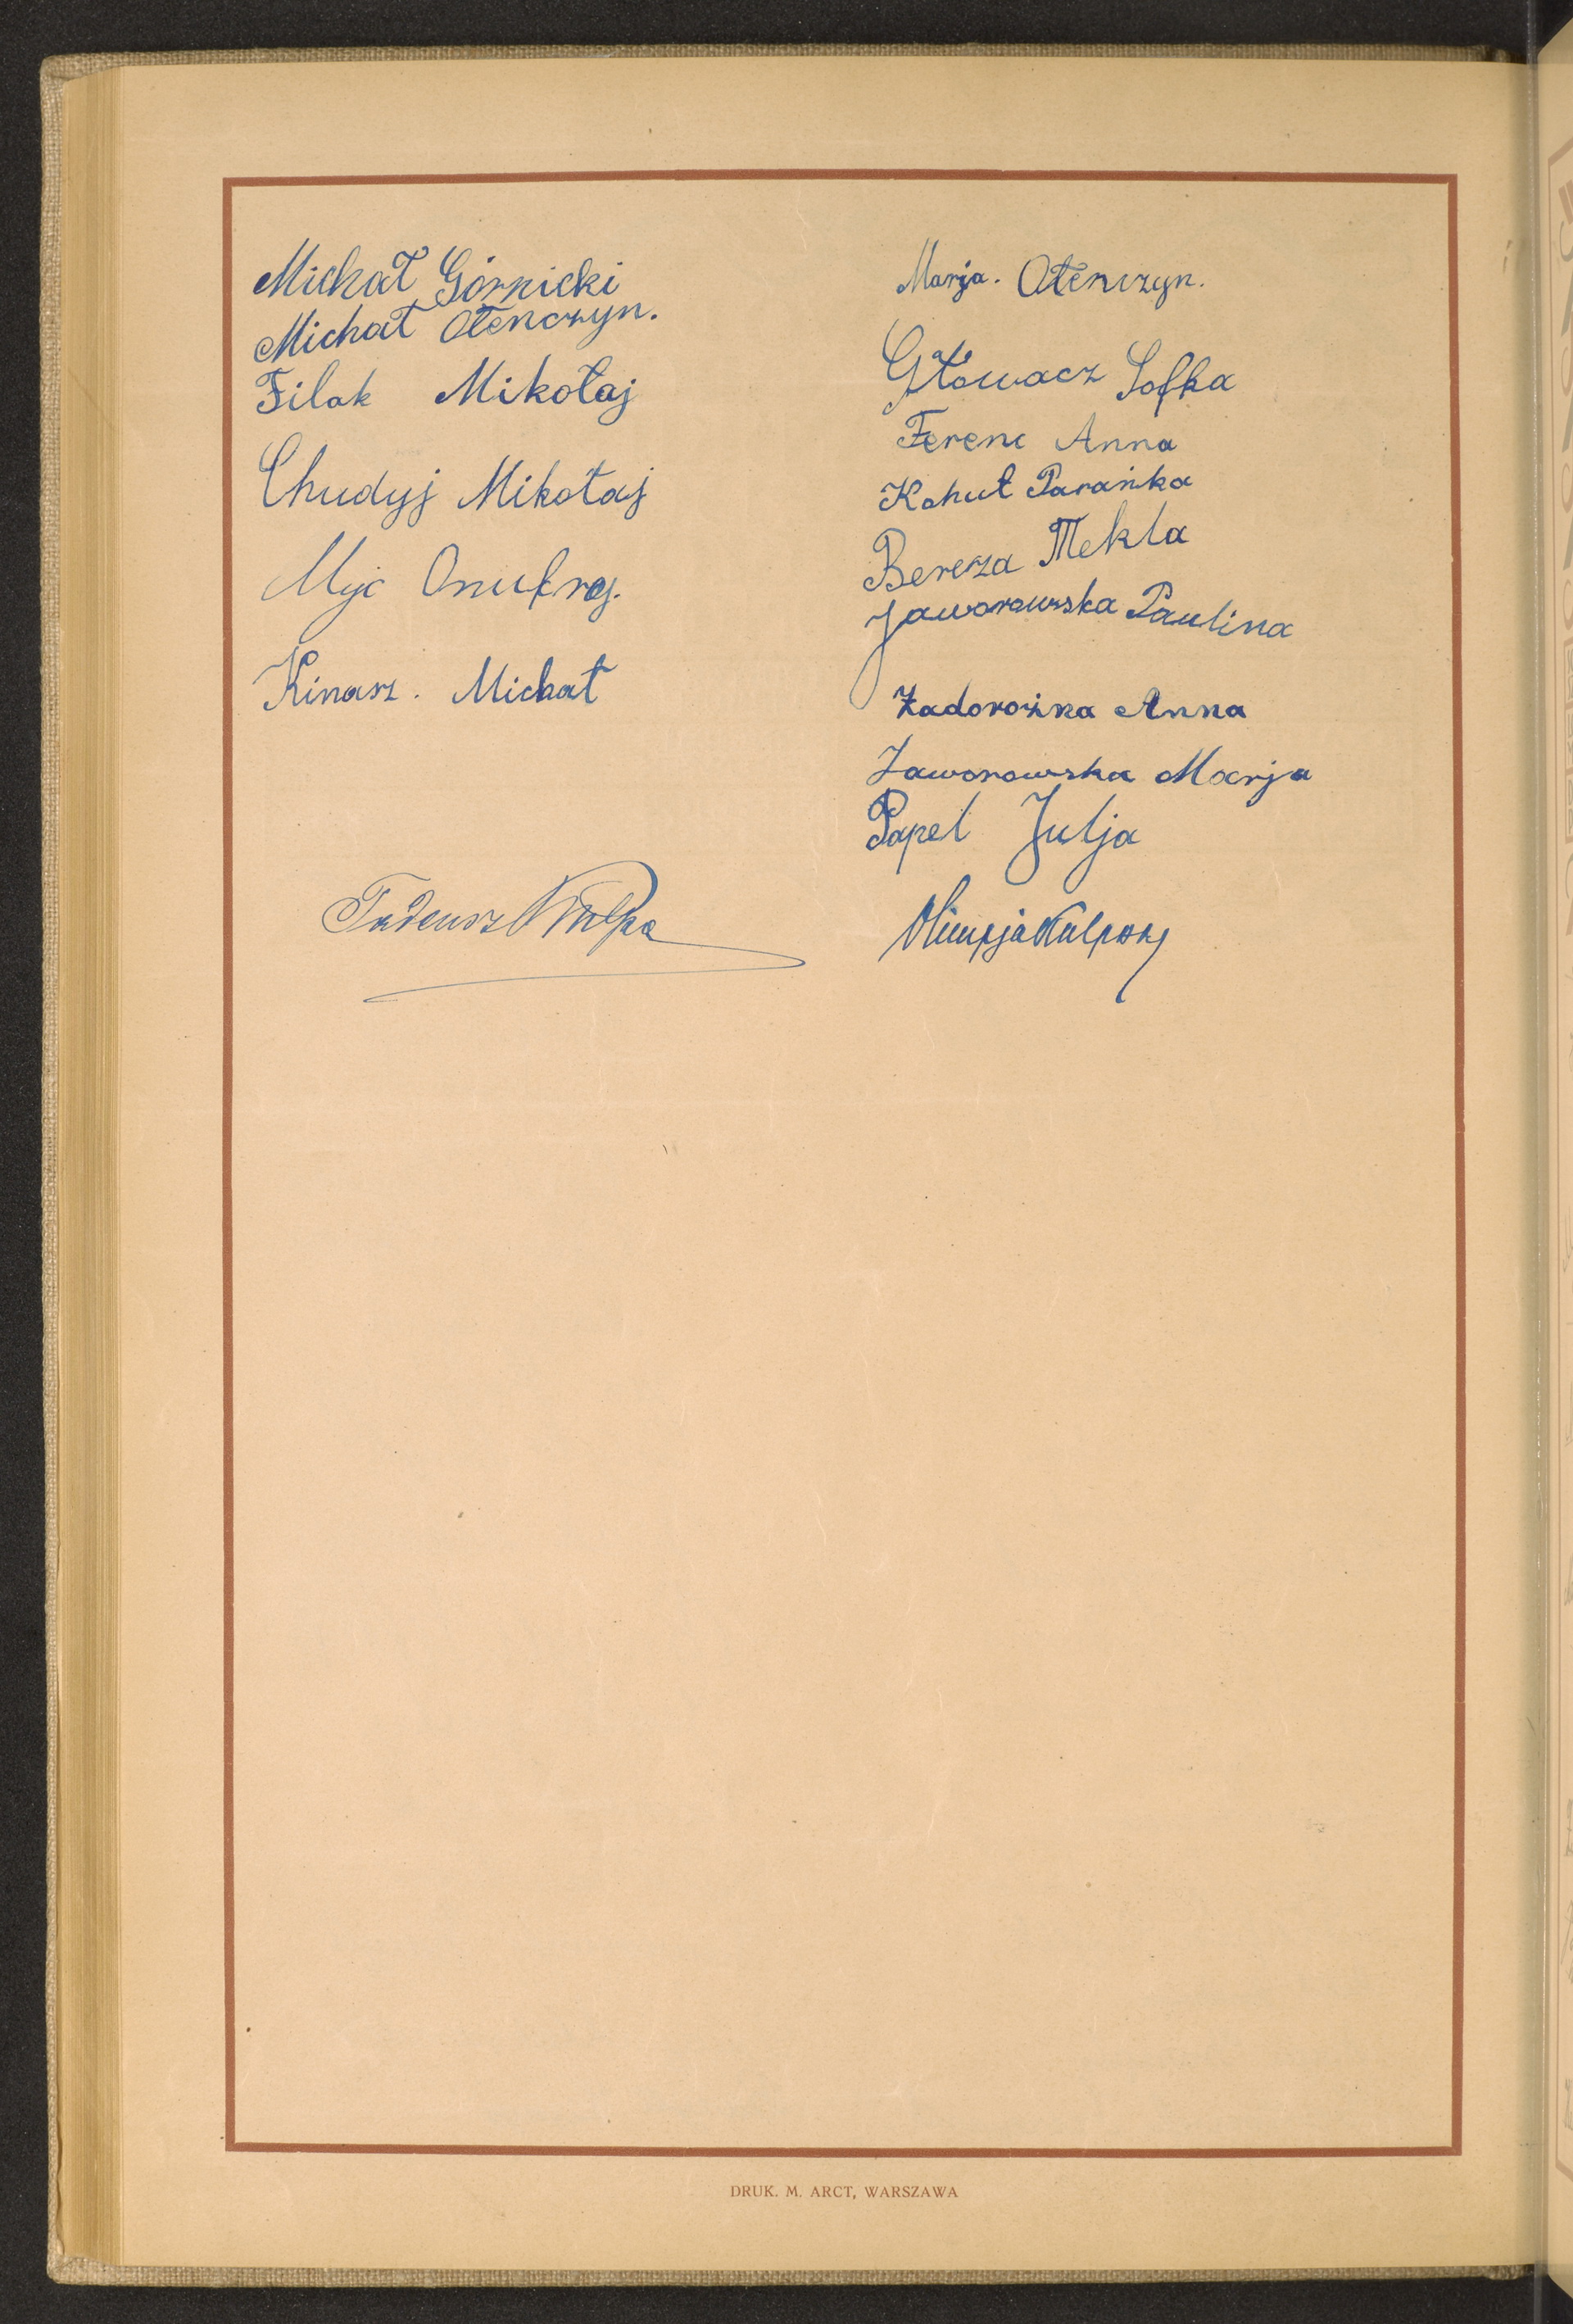 Michał Górnicki
Michał Ołenczyn.
Filak Mikołaj
Chudyj Mikołaj
Myc Onufrej.
Kinasz. Michał
Tadeusz Kulpa
Marja. Ołenczyn.
Głowacz Sofka
Ferenc Anna
Kohut Parańka
Bereza Tekla
Jaworowska Paulina
Zadorożna Anna
Jaworowska Marja
Papel Julja
Olimpja Kulpowa
DRUK. M. ARCT, WARSZAWA